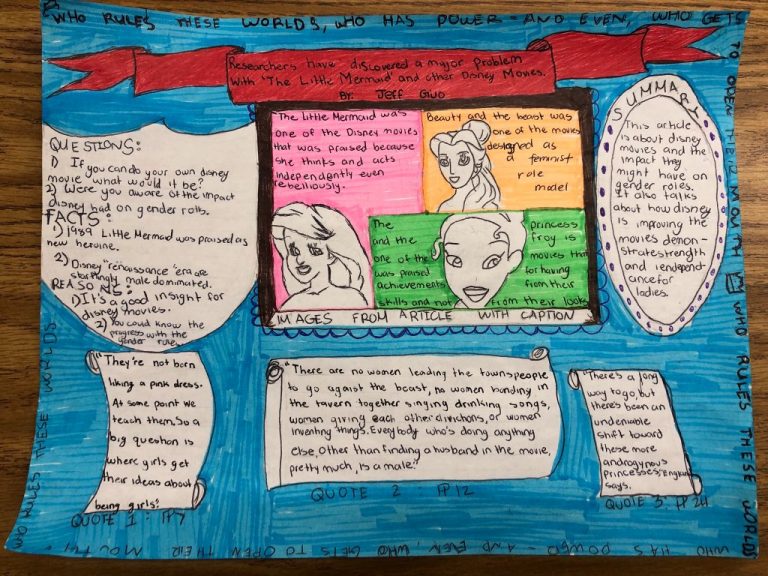 WHO RULES THESE WORLDS, WHO HAS POWER - AND EVEN, WHO GETS
TO OPEN THEIR MOUTH
WHO RULES THESE WORLDS
WHO HAS POWER - AND EVEN, WHO GETS TO OPEN THEIR MOUTH
THESE WORLDS
Researchers have discovered a major problem
With 'The Little Mermaid' and other Disney Movies.
By: Jeff Guo
QUESTIONS:
1) If you can do your own disney
movie what would it be?
2) Were you aware of the impact
disney had on gender rolls.
FACTS:
1) 1989 Little Mermaid was praised as
new heroine.
2) Disney "renaissance" era are
startlingly male dominated.
REASONS:
1) It's a good insight for
disney movies.
2) You could know the
progress with the
gender rules.
The Little Mermaid was
one of the Disney movies
that was praised because
she thinks and acts
independently even
rebelliously.
Beauty and the beast was
one of the movies
designed as
a feminist
role
model
The princess
and the frog is
one of the movies that
was praised for having
achievements from their
skills and not from their looks
IMAGES FROM ARTICLE WITH CAPTION
SUMMARY
This article
is about disney
movies and the
impact they
might have on
gender roles.
It also talks
about how disney
is improving the
movies demon-
strate strength
and independ-
ance for
ladies.
"They're not born
liking a pink dress.
At some point we
teach them. So a
big question is
where girls get
their ideas about
being girls."
QUOTE 1: PP7
"There are no women leading the townspeople
to go against the beast, no women bonding in
the tavern together singing drinking songs,
women giving each other
or women
inventing things. Everybody who's doing anything
else, other than funding a husband in the movie,
pretty much, is a male."
QUOTE 2 PP 12
"There's a long
way to go, but
there's been an
undeniable
shift toward
these more
androgynous
princesses,
says.
QUOTE 3 PP 24